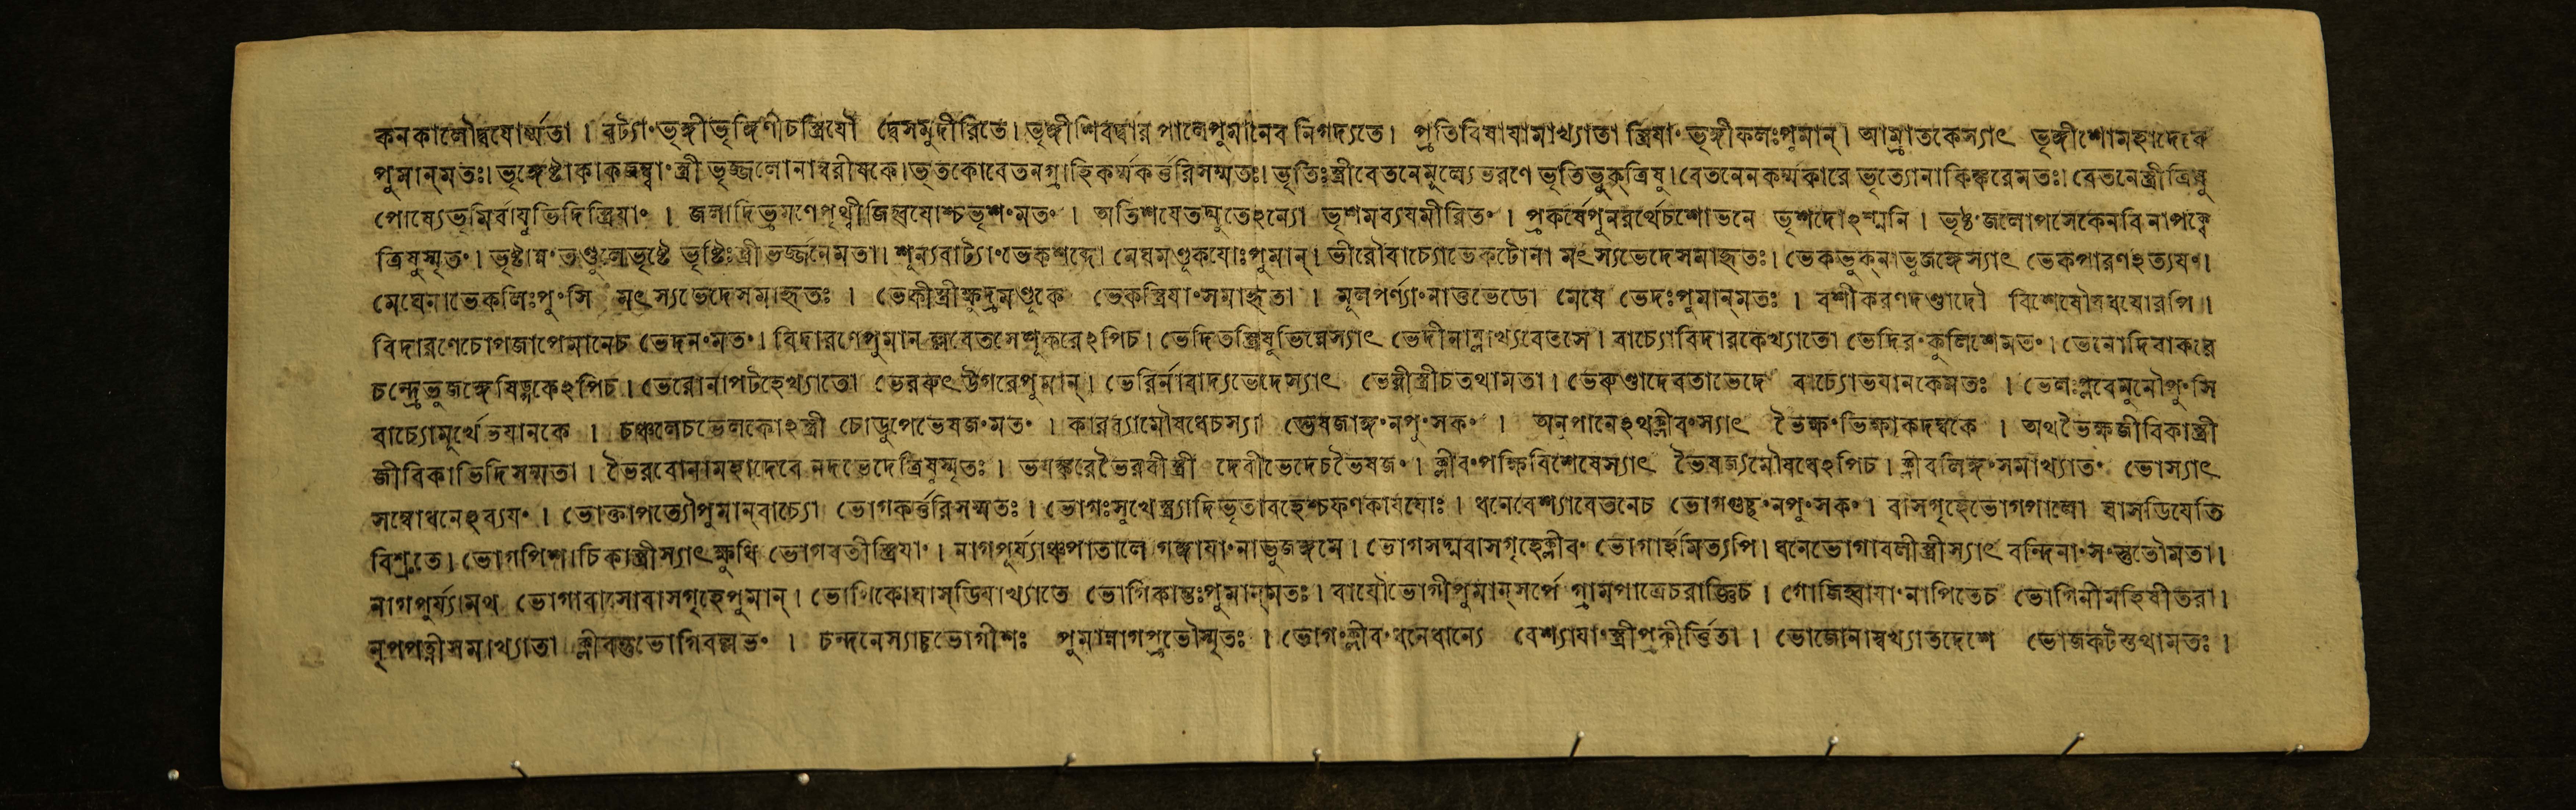 কনকালৌদ্বযোর্ম্মতা । বট্যা॰ভৃঙ্গীভৃঙ্গিণীচস্ত্রিযৌ দ্বেসমুদীরিতে। ভৃঙ্গীশিবদ্বারপালেপুমানেব নিগদ্যতে। প্রতিবিষাযামাখ্যাতা স্ত্রিযা॰ ভৃঙ্গীফলঃপুমান্। আম্রাতকেস্যাৎ ভৃঙ্গীশোমহাদেবে
পুমান্মতঃ। ভৃঙ্গেষ্টাকাকজম্ব্বা॰স্ত্রী ভৃজ্জলোনাম্বরীষকে। ভৃতকোবেতনগ্রাহিকর্ম্মকর্ত্তরিসম্মতঃ। ভৃতিঃস্ত্রীবেতনেমুল্যেভরণে ভৃতিভুক্ত্রিষু। বেতনেনকর্ম্মকারে ভৃত্যোনাকিঙ্করেমতঃ। বেতনেস্ত্রীত্রিষু
পোষ্যেভৃমির্বাযুভিদিস্ত্রিযা॰ । জলাদিভ্রমণেপৃথ্বীজিহ্বযোশ্চভৃশ॰মত॰ । অতিশযেতদ্যুতেঽন্যো ভৃশমব্যযমীরিত॰ । প্রকর্ষেপুনরর্থেচশোভনে ভৃশদোঽশ্মনি । ভৃষ্ট॰জলোপসেকেনবিনাপক্বে
ত্রিষুস্মৃত॰। ভৃষ্টান্ন॰তণ্ডুলেভৃষ্টে ভৃষ্টিঃস্ত্রীভর্জ্জনেমতা। শূন্যবাট্যা॰ভেকশব্দো মেঘমণ্ডূকযোঃপুমান্। ভীরৌবাচ্যোভেকটোনা মৎস্যভেদেসমাহৃতঃ। ভেকভুক্নাভুজঙ্গেস্যাৎ ভেকপারণইত্যযণ।
মেঘেনাভেকলিঃপু॰সি মৎস্যভেদেসমাহৃতঃ । ভেকীস্ত্রীক্ষুদ্রমণ্ডূকে ভেকস্ত্রিযা॰সমাহৃতা । মূলপর্ণ্যা॰নাত্তভেডো মেষে ভেদঃপুমান্মতঃ । বশীকরণদণ্ডাদৌ বিশেষৌষধযোরপি ।
বিদারণেচোপজাপেমানেচ ভেদন॰মত॰। বিদারণেপুমানম্লবেতসেশূকরেঽপিচ। ভেদিতস্ত্রিষুভিন্নেস্যাৎ ভেদীনাম্লাখ্যবেতসে। বাচ্যোবিদারকেখ্যাতো ভেদির॰কুলিশেমত॰। ভেনোদিবাকরে
চন্দ্রেভুজঙ্গেষিড়্গকেঽপিচ। ভেরোনাপটহেখ্যাতো ভেররুৎউগরেপুমান্। ভেরির্নাবাদ্যভেদেস্যাৎ ভেরীস্ত্রীচতথামতা। ভেরুণ্ডাদেবতাভেদে বাচ্যোভযানকেমতঃ । ভেলঃপ্লবেমুনৌপু॰সি
বাচ্যোমুর্খেভযানকে । চঞ্চলেচভেলকোঽস্ত্রী চোডুপেভেষজ॰মত॰ । কারব্যামৌষধেচস্যা দ্ভেষজাঙ্গ॰নপু॰সক॰ । অনুপানেঽথক্লীব॰স্যাৎ ভৈক্ষ॰ভিক্ষাকদম্বকে । অথভৈক্ষজীবিকাস্ত্রী
জীবিকাভিদিসম্মতা। ভৈরবোনামহাদেবে নদভেদেত্রিষুস্মৃতঃ । ভযঙ্করেভৈরবীস্ত্রী দেবীভেদেচভৈষজ॰। ক্লীব॰পক্ষিবিশেষেস্যাৎ ভৈষজ্যমৌষধেঽপিচ। ক্লীবলিঙ্গ॰সমাখ্যাত॰ ভোস্যাৎ
সম্বোধনেঽব্যয॰ । ভোক্তাপত্যৌপুমান্বাচ্যো ভোগকর্ত্তরিসম্মতঃ । ভোগঃসুখেস্ত্র্যাদিভৃতাবহেশ্চফণকাযযোঃ । ধনেবেশ্যাবেতনেচ ভোগগুচ্ছ॰নপু॰সক॰ । বাসগৃহেভোগপালো ঘাসডিযেতি
বিশ্রুতে। ভোগপিশাচিকাস্ত্রীস্যাৎক্ষুধি ভোগবতীস্ত্রিযা॰ । নাগপূর্য্যাঞ্চপাতালে গঙ্গাযা॰নাভুজঙ্গমে। ভোগসদ্মবাসগৃহেক্লীব॰ ভোগার্হমিত্যপি। ধনেভোগাবলীস্ত্রীস্যাৎ বন্দিনা॰স॰স্তুতৌমতা।
নাগপুর্য্যামথ ভোগাবাসোবাসগৃহেপুমান্। ভোগিকোঘাস্ডিযাখ্যাতে ভোগিকান্তঃপুমান্মতঃ। বাযৌভোগীপুমান্সর্পে গ্রামপাত্রেচরাজ্ঞিচ । গোজিহ্বাযা॰নাপিতেচ ভোগিনীমহিষীতরা।
নৃপপত্নীসমাখ্যাতা ক্লীবন্তুভোগিবল্লভ॰ । চন্দনেস্যাচ্চভোগীশঃ পুমান্নাগপ্রভৌস্মৃতঃ । ভোগ॰ক্লীব॰ধনেধান্যে বেশ্যাযা॰স্ত্রীপ্রকীর্ত্তিতা । ভোজোনাম্বখ্যাতদেশে ভোজকটস্তথামতঃ ।